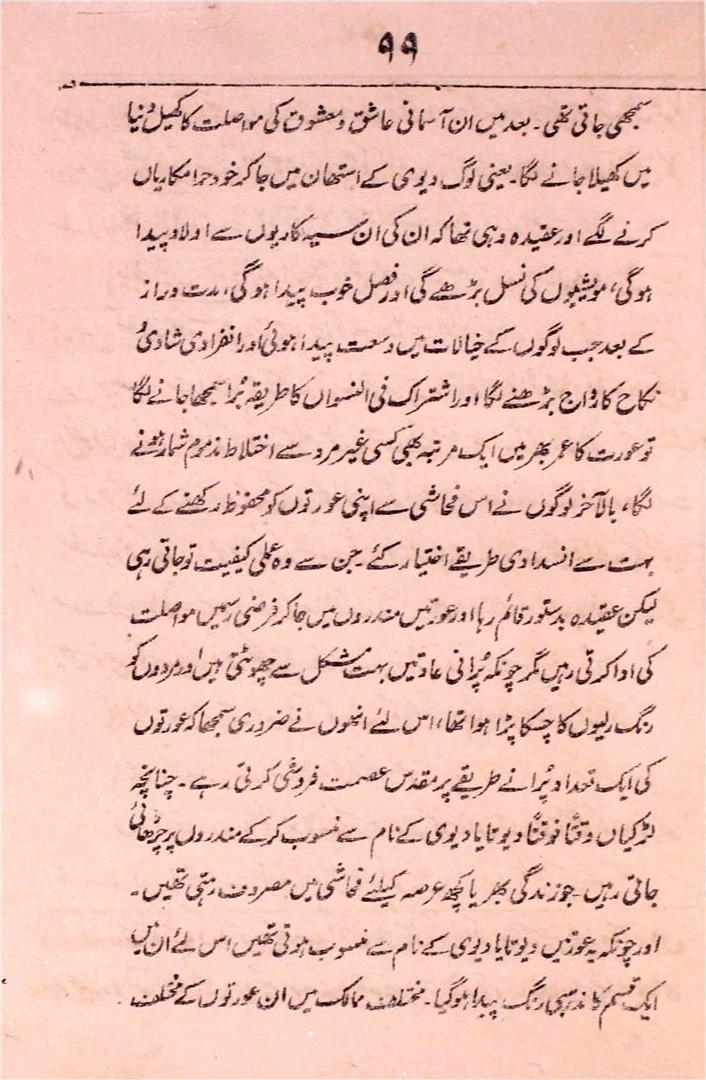 ۹۹
سمجھی جاتی تھی۔ بعد میں ان آسمانی عاشق و معشوق کی مواصلت کا کھیل دنیا
میں کھیلا جانے لگا۔ یعنی لوگ دیوی کے استھان میں جا کر خود حرامکاریاں
کرنے لگے اور عقیدہ وہی تھا کہ ان کی ان سیہ کاریوں سے اولاد پیدا
ہوگی، مویشیوں کی نسل بڑھے گی اور فصل خوب پیدا ہوگی، مدت دراز
کے بعد جب لوگوں کے خیالات میں وسعت پیدا ہوئی اور انفرادی شادی و
نکاح کا رواج بڑھنے لگا اور اشتراک فی النسواں کا طریقہ بُرا سمجھا جانے لگا
تو عورت کا عمر بھر میں ایک مرتبہ بھی کسی غیر مرد سے اختلاط مذموم شمار ہونے
لگا، بالآخر لوگوں نے اس فحاشی سے اپنی عورتوں کو محفوظ رکھنے کے لئے
بہت سے انسدادی طریقے اختیار کئے۔ جن سے وہ عملی کیفیت تو جاتی رہی
لیکن عقیدہ بدستور قائم رہا اور عورتیں مندروں میں جا کر فرضی رسمیں مواصلت
کی ادا کرتی رہیں مگر چونکہ پُرانی عادتیں بہت مشکل سے چھوٹتی ہیں اور مردوں کو
رنگ رلیوں کا چسکا پڑا ہوا تھا، اس لئے انھوں نے ضروری سمجھا کہ عورتوں
کی ایک تعداد پُرانے طریقے پر مقدس عصمت فروشی کرتی رہے۔ چنانچہ
لڑکیاں وقتاً فوقتاً دیوتا یا دیوی کے نام سے منسوب کر کے مندروں پر چڑھائی
جاتی رہیں۔ جو زندگی بھر یا کچھ عرصہ کیلئے فحاشی میں مصروف رہتی تھیں۔
اور چونکہ یہ عورتیں دیوتا یا دیوی کے نام سے منسوب ہوتی تھیں اس لئے ان میں
ایک قسم کا مذہبی رنگ پیدا ہوگیا۔ مختلف ممالک میں ان عورتوں کے مختلف